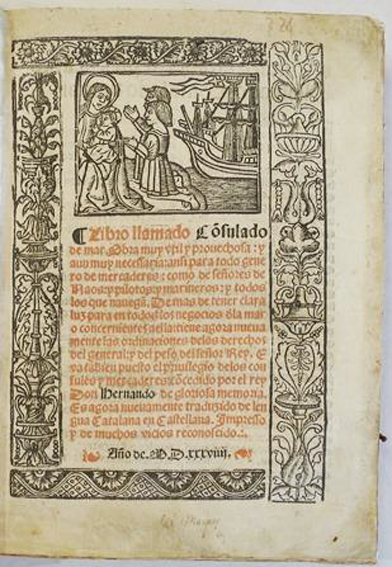 ¶ Libro llamado Cõsulado
de mar. Obra muy vtil y prouechosa: y
aun muy necessaria: ansi para todo gene
ro de mercaderes: como de señores de
Naos: y pilotos: y marineros: y todos
los que nauegã. De mas de tener clara
luz para en todos los negocios dla mar
o concernientes a ella: tiene agora nueua
mente las ordinaciones delos derechos
del general: y del peso del señor Rey. E
va tãbien puesto el priuilegio delos con
sules y mercaderes cõcedido por el rey
Don Hernando de gloriosa memoria.
Es agora nueuamente traduzido de len
gua Catalana en Castellana. Impresso
y de muchos vicios reconoscido.
Año de. M. D. xxxviiij.